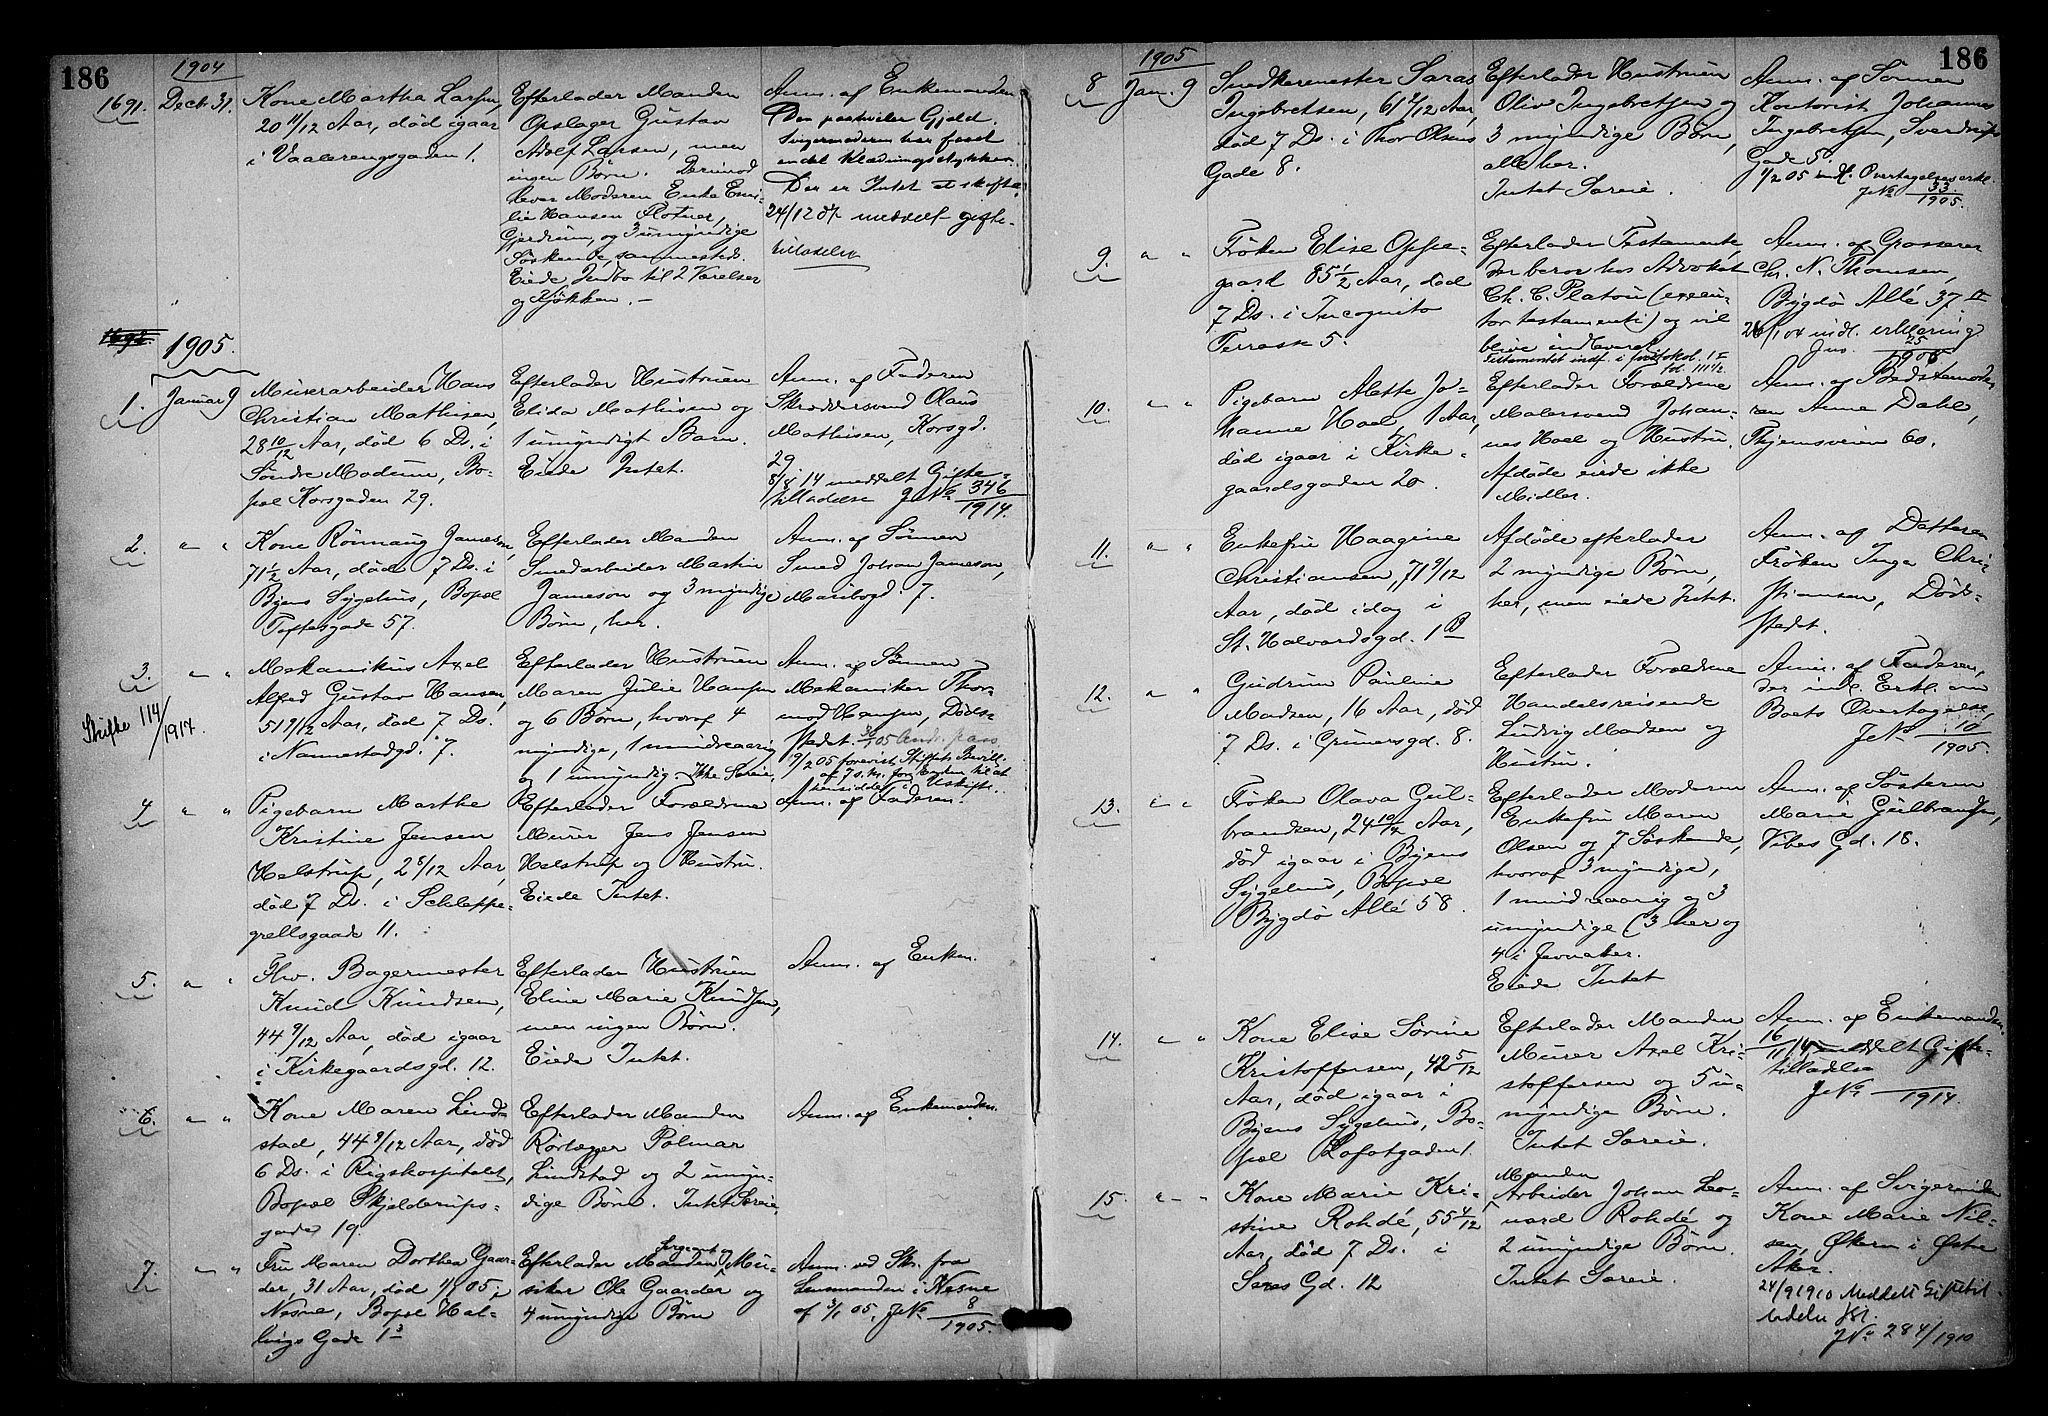 186
1904
1691. Decb. 31.
Kone Martha Larsen,
20 11/12 Aar, død igaar
i Vaalerengsgaden 1.
Efterlader Manden
Opslager Gustav
Adolf Larsen, men
ingen Børn. Derimod
lever Moderen Enke Emi-
lie Hansen Flotner,
Gjerdrum, og 3 umyndige
Søskende sammesteds.
Eiede Indbo til 2 Værelser
og Kjøkken. -
Anm. af Enkemanden.
Der paahviler Gjæld.
Svigermoderen har faaet
endel Klædningsstykker.
Der er Intet at skifte.
24/12 07 meddelt gifte-
tilladelse
1692.
1905.
1. Januar 9
Murerarbeider Hans
Christian Mathisen,
28 10/12 Aar, død 6 Ds. i
Søndre Modum, Bo-
pæl Korsgaden 29.
Efterlader Hustruen
Elida Mathisen og
1 umyndigt Barn.
Eiede Intet.
Anm. af Faderen
Skræddersvend Olaus
Mathisen, Korsgd.
29
8/8 14 meddelt Gifte-
tilladelse JNo 346
1914.
2. " "
Kone Rønnaug Jameson,
71 1/2 Aar, død 7 Ds. i
Byens Sygehus, Bopæl
Toftesgade 57.
Efterlader Manden
Smedarbeider Martin
Jameson og 3 myndige
Børn, her.
Anm. af Sønnen
Smed Johan Jameson,
Maribogd. 7.
3. " "
Skifte 114/1917.
Mekanikus Axel
Alfred Gustav Hansen,
51 9/12 Aar, død 7 Ds.
i Nannestadgd. 7.
Efterlader Hustruen
Maren Julie Hansen
og 6 Børn, hvoraf 4
myndige, 1 mindreaarig
og 1 umyndig. Ikke Særeie.
Anm. af Sønnen
Mekaniker Thor-
mod Hansen, Døds-
stedet.
9/2 05 forevist Stiftets Bevill.
af 7 s. M. for Enken til at
hensidde i Uskifte.
4. " "
Pigebarn Marthe
Kristine Jensen
Helstrup, 2 8/12 Aar,
død 7 Ds. i Schleppe-
grellsgade 11.
Efterlader Forældrene
Murer Jens Jensen
Helstrup og Hustru.
Eiede Intet.
Anm. af Faderen.
5. " "
Fhv. Bagermester
Knud Knudsen,
44 9/12 Aar, død igaar
i Kirkegaardsgd. 12.
Efterlader Hustruen
Eline Marie Knudsen,
men ingen Børn.
Eiede Intet.
Anm. af Enken.
6. " "
Kone Maren Lind-
stad, 44 9/12 Aar, død
6 Ds. i Rigshospitalet,
Bopæl Skjelderups-
gade 19.
Efterlader Manden
Rørlægger Polmar
Lindstad og 2 umyn-
dige Børn. Intet Særeie.
Anm. af Enkemanden.
7. " "
Fru Maren Dorthea Gaar-
der, 31 Aar, død 1/1 05, i
Nesne, Bopæl Hal-
lings Gade 1 3
Efterlader Manden Sergeant og Mu-
siker Ole Gaarder og
4 umyndige Børn
Anm. ved Skr. fra
Lensmanden i Nesne
af 3/1 05, JNo 8
1905.
186
1905
8 Jan. 9
Snedkermester Saras
Ingebretsen, 61 7/12 Aar,
død 7 Ds. i Thor Olsens
Gade 8.
Efterlader Hustruen
Oliv Ingebretsen og
3 myndige Børn,
alle her.
Intet Særeie.
Anm. af Sønnen
Kontorist Johannes
Ingebretsen, Sverdrups
Gade 5.
1/2 05 indl. Overtagelseserkl.
JNo 33
1905.
9. " "
Frøken Elise Oppe-
gaard 85 1/2 Aar, død
7 Ds. i Incognito
Terrasse 5.
Efterlader Testamente,
der beror hos Advokat
Ch. C. Platou (execu-
tor testamenti) og vil
blive indleveret
Testamentet indf. i protokol. 1
fol. 111 1/2
Anm. af Grosserer
Chr. N. Thomsen,
Bygdø Allé 37 II
26/1 04 indl. erklæring
Jno. 25
1905
10. " "
Pigebarn Alette Jo-
hanne Hoel, 1 Aar,
død igaar i Kirke-
gaardsgaden 20.
Efterlader Forældrene
Malersvend Johan-
nes Hoel og Hustru.
Afdøde eiede ikke
Midler.
Anm. af Bedstemode-
ren Anne Dahl,
Thjemsveien 60.
11. " "
Enkefru Haagine
Christiansen, 71 9/12
Aar, død idag i
St. Halvardsgd. 1 B
Afdøde efterlader
2 myndige Børn,
her, men eiede Intet.
Anm. af Datteren
Frøken Inga Chri-
stiansen, Døds-
stedet.
12. " "
Gudrun Pauline
Madsen, 16 Aar, død
7 Ds. i Grünersgd. 8.
Efterlader Forældrene
Handelsreisende
Ludvig Madsen og
Hustru.
Anm. af Faderen,
der indl. Erkl. om
Boets Overtagelse,
JNo 10
1905.
13. " "
Frøken Olava Gul-
brandsen, 24 10/12 Aar,
død igaar i Byens
Sygehus, Bopæl
Bygdø Allé 58.
Efterlader Moderen
Enkefru Maren
Olsen og 7 Søskende,
hvoraf 3 myndige,
1 mindreaarig og 3
umyndige (3 her og
4 i Jevnaker.
Eiede Intet
Anm. af Søsteren
Marie Gulbrandsen,
Vibes Gd. 18.
14. " "
Kone Elise Sørine
Kristoffersen, 42 5/12
Aar, død igaar i
Byens Sygehus, Bo-
pæl Lofotgaden 1.
Efterlader Manden
Murer Axel Kri-
stoffersen og 5 u-
myndige Børn.
Intet Særeie.
Anm. af Enkemanden.
16/11 14 meddelt Gifte-
tilladelse
JNo
1914.
15. " "
Kone Marie Kri-
stine Rohdé, 55 4/12
Aar, død 7 Ds. i
Saras Gd. 12
Manden
Arbeider Johan Leo-
nard Rohdé og
2 umyndige Børn.
Intet Særeie.
Anm. af Svigerinden
Kone Marie Nil-
sen, Økern i Østre
Aker.
24/9 1910 Meddelt Giftetil-
ladelse
JNo 284/1910